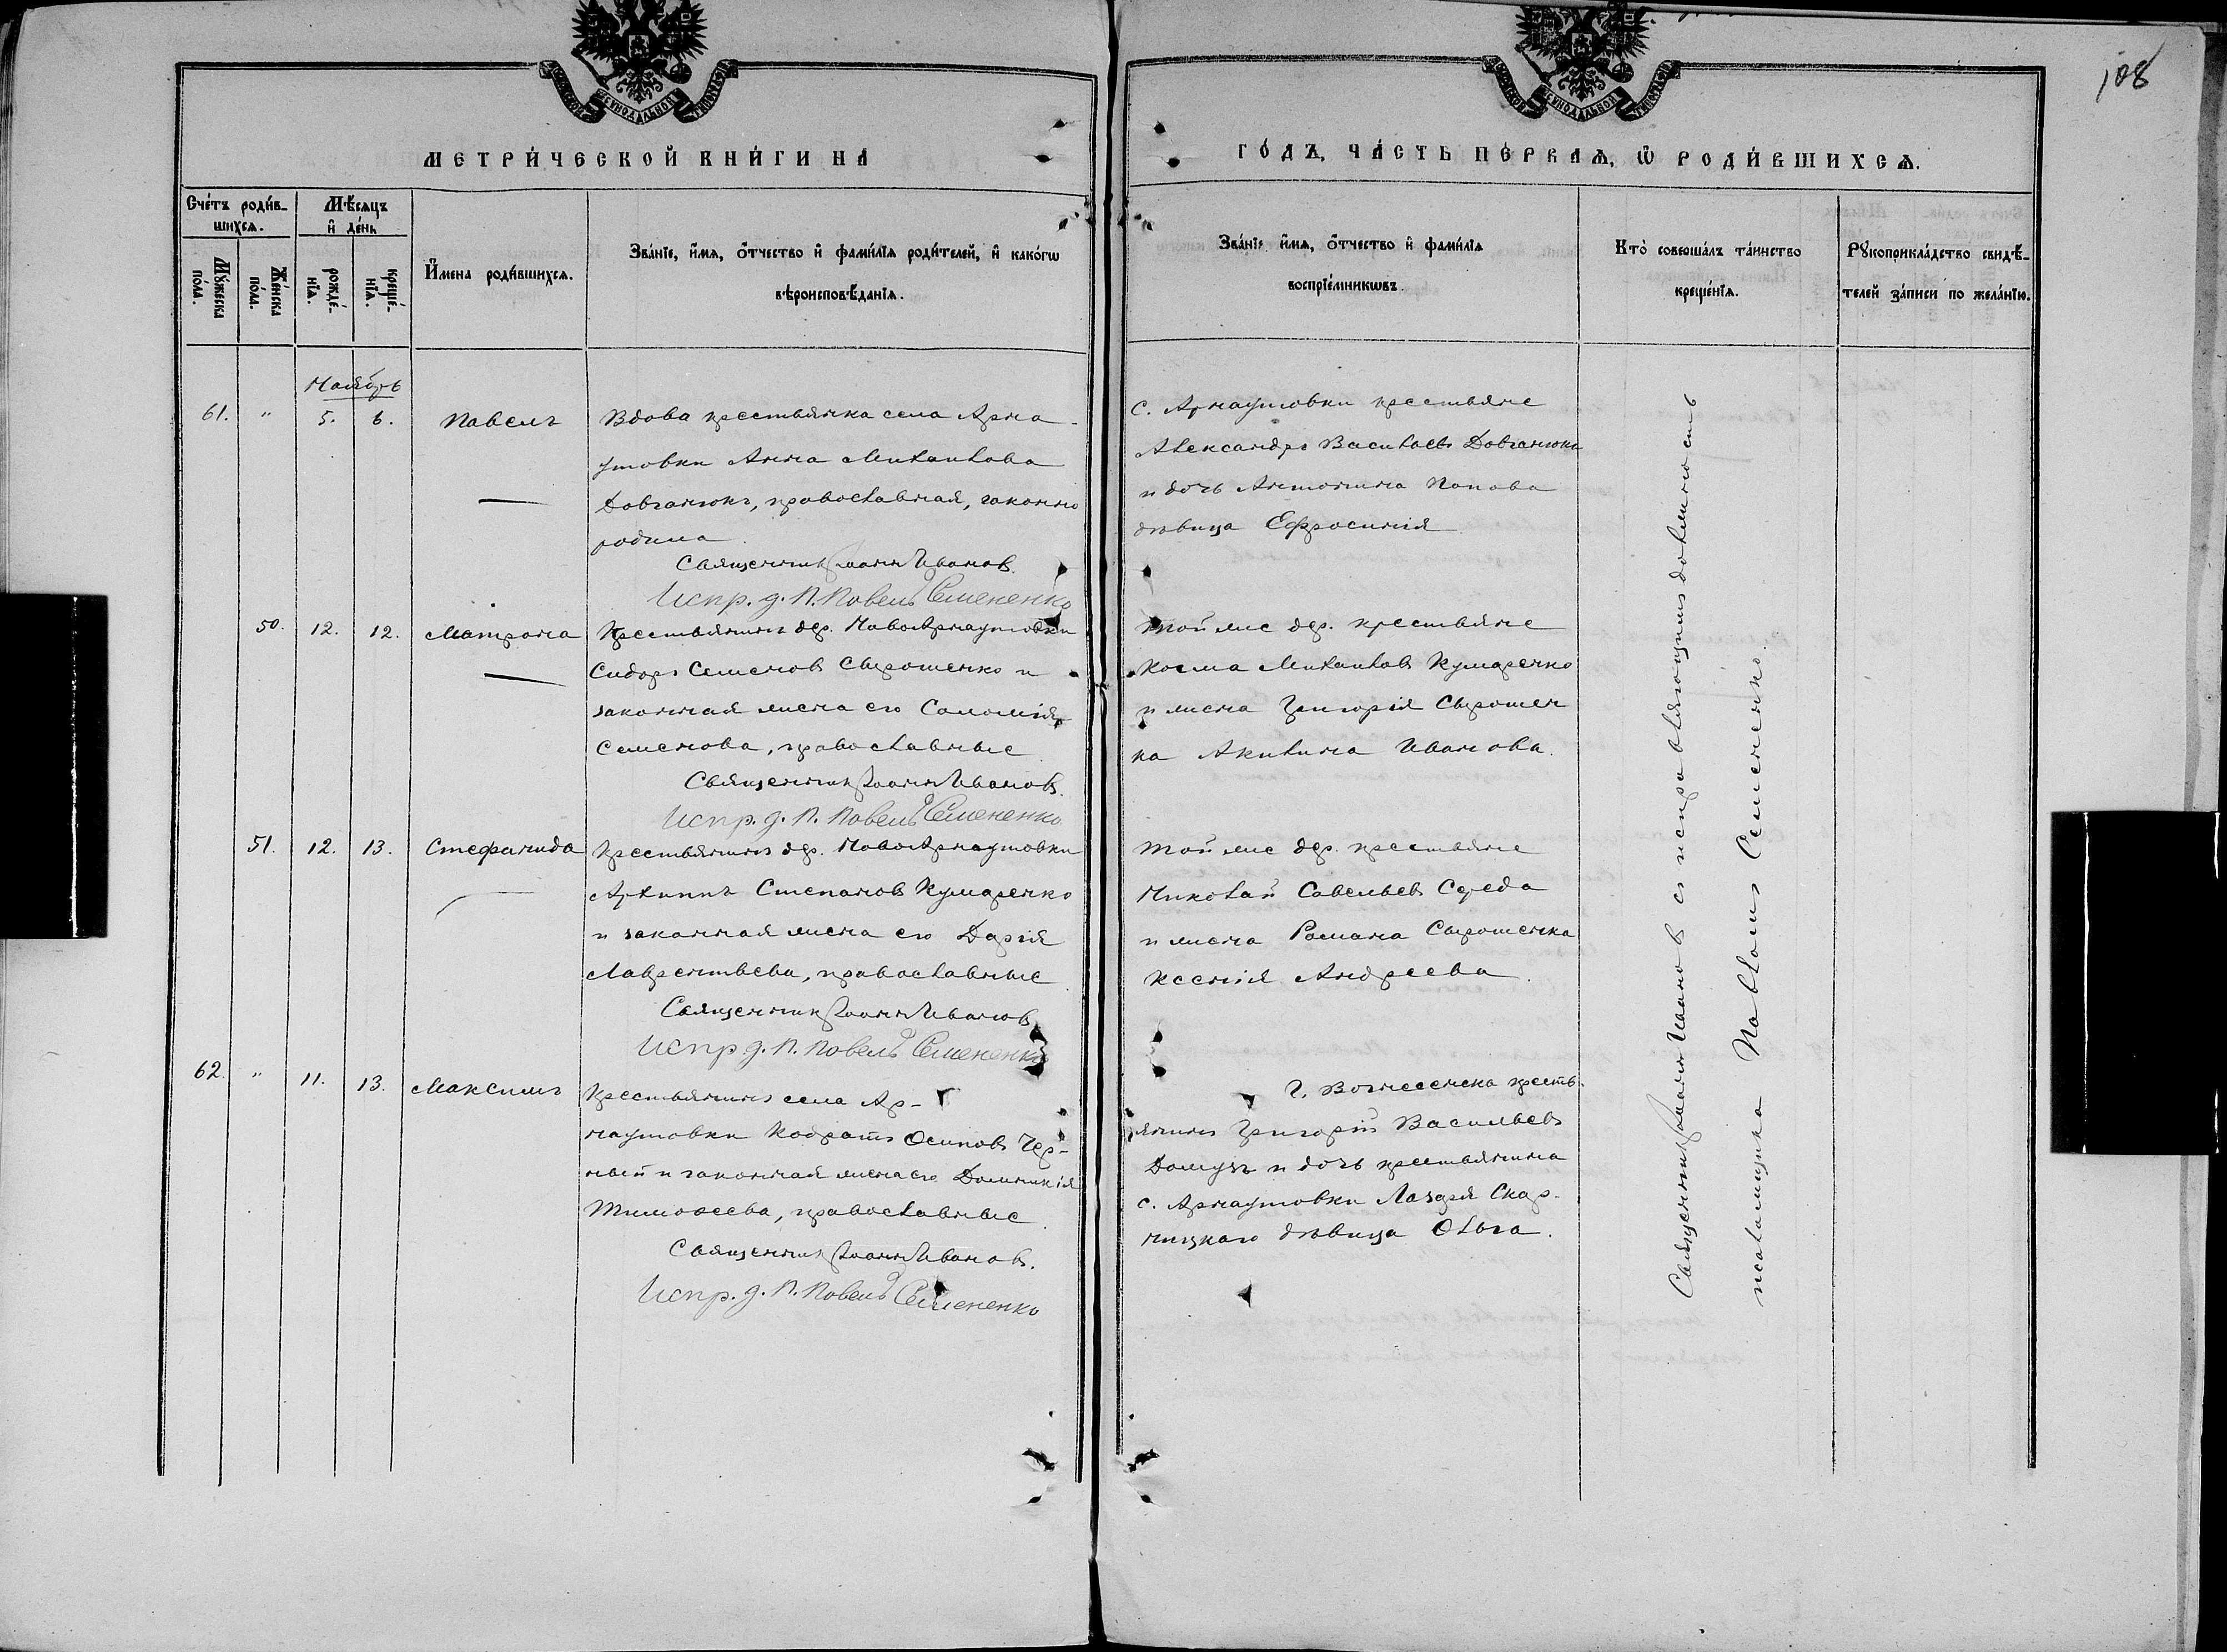 108
МЕТРИ́ЧЕСКОЙ КНИ́ГИ НА́
ГО́ДЪ, ЧА́СТЬ ПЕ́РВАѦ, Ѡ РОДИ́ВШИХСѦ.
Сче́тъ роди́в-
шихсѧ.
Мѣ́сѧцъ
и҆ де́нь
Мꙋ́жеска
по́ла.
Же́нска
по́ла.
рожде́-
нїѧ.
креще́-
нїѧ.
И҆мена роди́вшихсѧ.
Зва́нїе, и҆́мѧ, ѻ҆́тчество и҆ фами́лїѧ роди́телей, и҆ како́гѡ
вѣроисповѣ́данїѧ.
Зва́нїе и҆́мѧ, ѻ҆́тчество и҆ фами́лїѧ
воспрїе́мникѡвъ.
Кто̀ соверша́лъ та́инство
креще́нїѧ.
Рꙋкоприкла́дство свидѣ́-
телей за́писи по жела́нїю.
Ноябрь
61. " 5. 6. Павелъ
Вдова крестьянка села Арна-
утовки Анна Михаилова
Довганюкъ, православная, законно
родила
Священникъ Іоаннъ Ивановъ.
Испр. д. П. Павелъ Семененко
с. Арнаутовки крестьяне
Александръ Васильевъ Довганюкъ
и дочь Антонина Попова
дѣвица Ефросинія
50. 12. 12. Матрона
Крестьянинъ дер. НовоАрнаутовки
Сидоръ Семеновъ Сырошенко и
законная жена его Саломія
Семенова, православные
Священникъ Іоаннъ Ивановъ.
Испр. д. П. Павелъ Семененко
Той же дер. крестьяне
Косма Михаиловъ Кумаренко
и жена Григорія Сырошен
ка Акилина Иванова.
51. 12. 13. Стефанида
Крестьянинъ дер. НовоАрнаутовки
Архиппъ Степановъ Кумаренко
и законная жена его Дарія
Лаврентьева, православные
Священникъ Іоаннъ Ивановъ
Испр. д. П. Павелъ Семененко
Той же дер. крестьяне
Николай Савельевъ Середа
и жена Романа Сырошенка
Ксенія Андреева.
62. " 11. 13. Максимъ
Крестьянинъ села Ар-
наутовки Кодратъ Осиповъ Чер-
ный и законная жена его Домникія
Тимофеева, православные
Священникъ Іоаннъ Ивановъ.
Испр. д. П. Павелъ Семененко
г. Вознесенска кресть-
янинъ Григорій Васильевъ
Домузъ и дочь крестьянина
с. Арнаутовки Лазаря Скар-
ницкаго дѣвица Ольга.
Священникъ Іоаннъ Ивановъ съ исправляющимъ должность
псаломщика Павломъ Семененко.